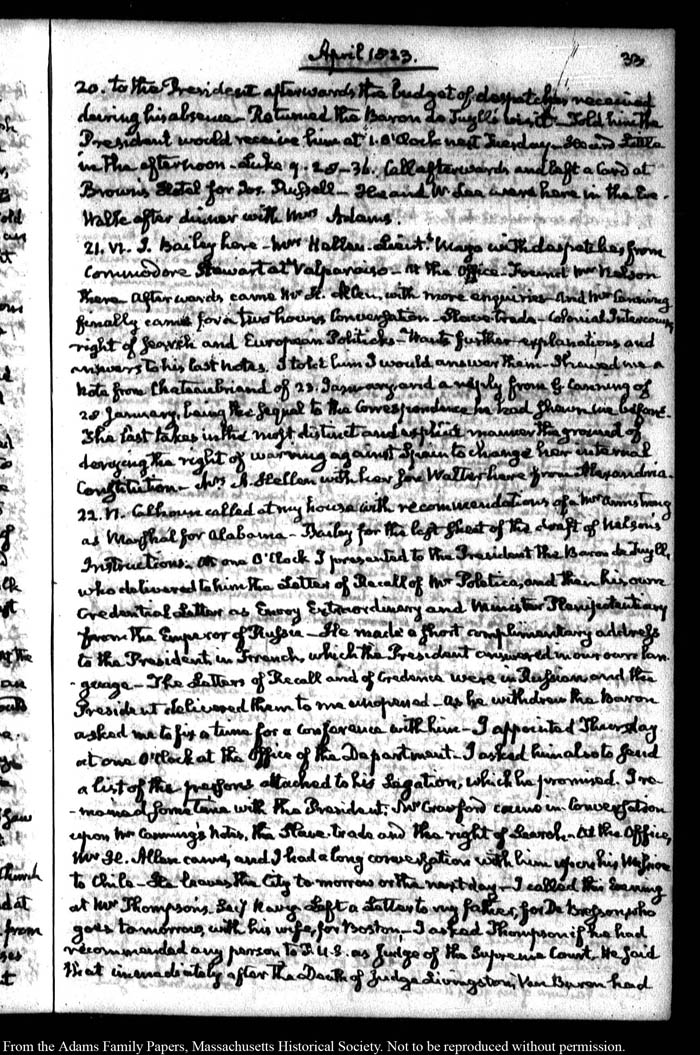 April 1823.
33
20. to the President afterwards the budget of despatches received
during his absence - Returned the Baron de Tuyll's visit - Told him the
President would receive him at 1. O'Clock next Tuesday - Heard Little
in the afternoon - Luke 9. 28-36. Call afterwards and left a Card at
Browns Hotel for Jos. Russell - He and W. Lee were here in the Eve.
Walk after dinner with Mrs Adams.
21. VI. J. Bailey here - Mrs Hellen - Lieut. Mayo with despatches from
Commodore Stewart at Valparaiso - At the Office - Found Mr Nelson
there afterwards came Mr H. Allen, with more enquiries - And Mr Canning
finally came for a two hours Conversation - Slave trade - Colonial Intercourse,
right of search and European Politicks - Wants further explanations and
answers to his last notes. I told him I would answer them - Shewed me a
Note from Chateaubriand of 23. January, and a reply from G. Canning of
28 January, being the sequel to the Correspondence he had shewn me before.
The last takes in the most distinct and explicit manner the ground of
denying the right of warring against Spain to change her internal
Constitution - Mrs A. Hellen with her son Walter here from Alexandria.
22. VI. Calhoun called at my house with recommendations of a Mr Armstrong
as Marshal for Alabama - Bailey for the last sheet of the draft of Nelson's
Instructions. At one O'Clock I presented to the President the Baron de Tuyll,
who delivered to him the Letter of Recall of Mr Poletica, and then his own
Credential Letter as Envoy Extraordinary and Minister Plenipotentiary
from the Emperor of Russia - He made a short complimentary address
to the President in French, which the President answered in our own lan-
-guage - The Letters of Recall and of Credence were in Russian and the
President delivered them to me unopened - As he withdrew the Baron
asked me to fix a time for a Conference with him - I appointed Thursday
at one O'Clock at the Office of the Department - I asked him also to send
a list of the persons attached to his Legation, which he promised. I re-
-mained some time with the President; Mr Crawford came in. Conversation
upon Mr Canning's Notes, the Slave trade and the right of Search - At the Office,
Mr H. Allen came, and I had a long conversation with him upon his Mission
to Chile - He leaves the City to-morrow or the next day - I called this Evening
at Mr Thompson's Secy Navy. Left a Letter to my father, for De Bresson, who
goes tomorrow, with his wife, for Boston - I asked Thompson if he had
recommended any person to P. U.S. as Judge of the Supreme Court. He said
that immediately after the Death of Judge Livingston, Van Buren had
From the Adams Family Papers, Massachusetts Historical Society. Not to be reproduced without permission.